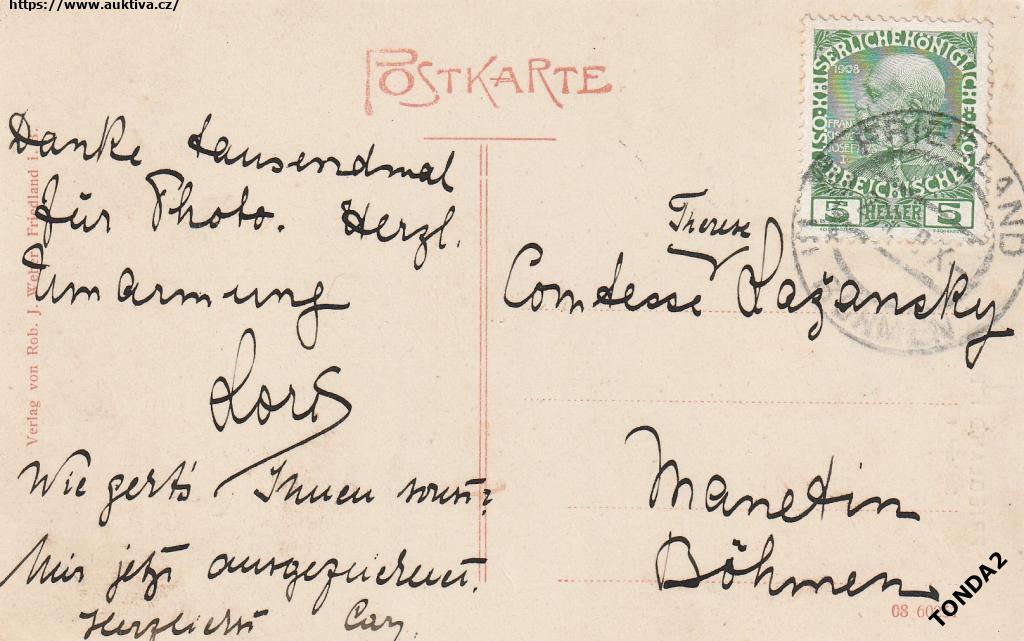 https://www.auktiva.cz/
POSTKARTE
Danke tausendmal
für Photo. Herzl.
Umarmung
Wie geht's Ihnen sonst?
Mir jetzt ausgezeichnet.
Herzlichst
Verlag von Rob. J. Weber, Friedland i. B.
KAISERLICHE KÖNIGLICHE
ÖSTERREICHISCHE
1908
FRANZ
JOSEF
I
5 HELLER 5
BÖHMEN
Therese
Comtesse Lažansky
Manetin
Böhmen.
08 60
TONDA2